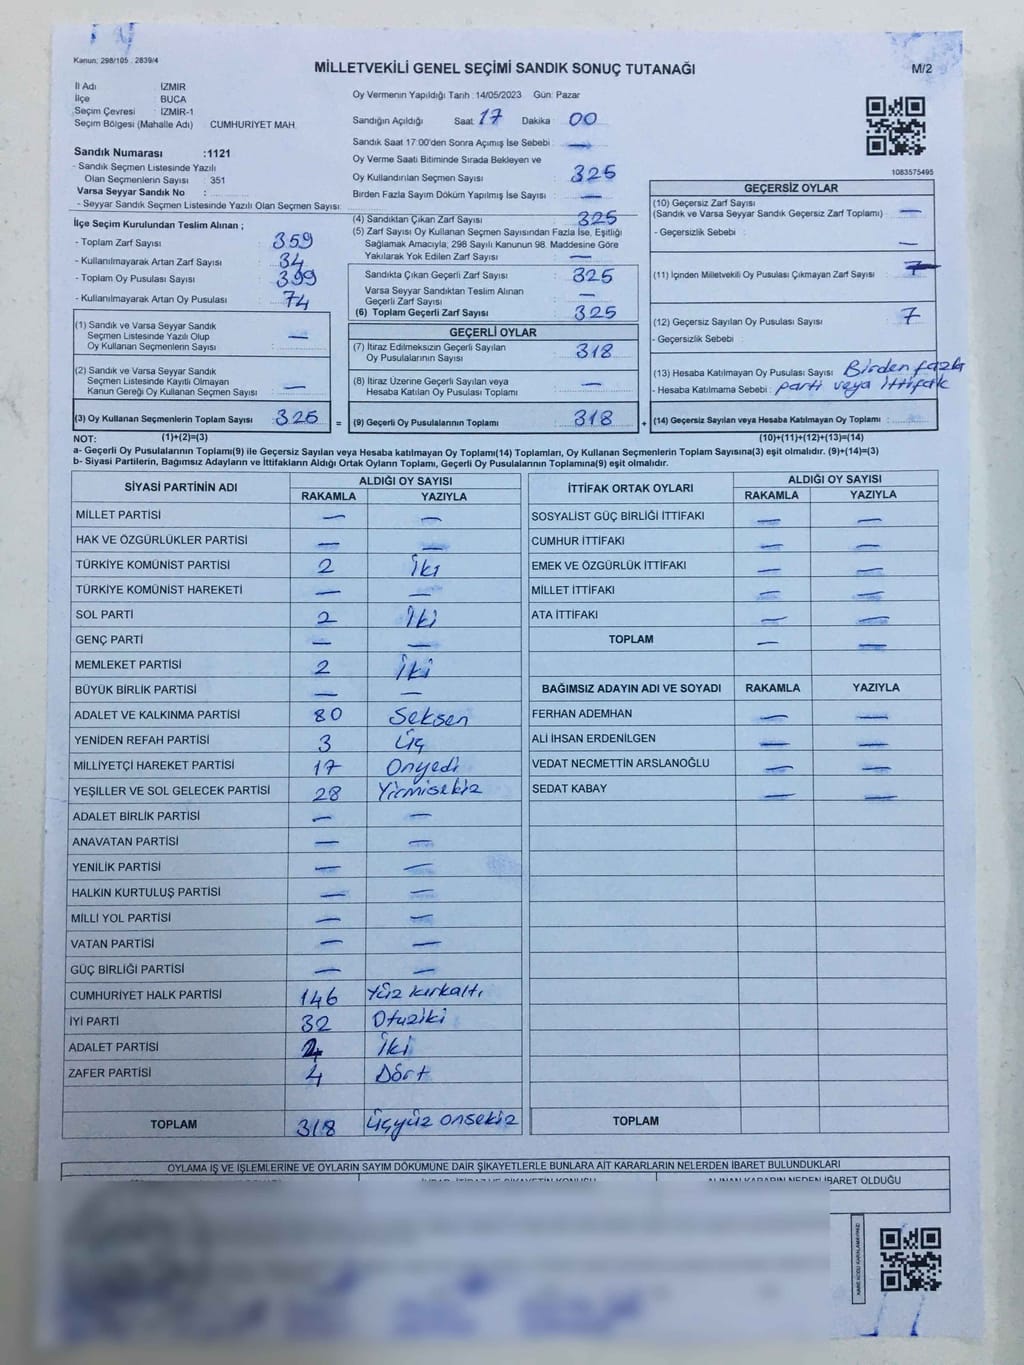 Kanun: 298/105 . 2839/4
MİLLETVEKİLİ GENEL SEÇİMİ SANDIK SONUÇ TUTANAĞI
M/2
İl Adı : İZMİR
İlçe : BUCA
Seçim Çevresi : İZMİR-1
Seçim Bölgesi (Mahalle Adı) CUMHURİYET MAH.
Sandık Numarası :1121
- Sandık Seçmen Listesinde Yazılı
Olan Seçmenlerin Sayısı : 351
Varsa Seyyar Sandık No :
- Seyyar Sandık Seçmen Listesinde Yazılı Olan Seçmen Sayısı:
Oy Vermenin Yapıldığı Tarih :14/05/2023 Gün: Pazar
Sandığın Açıldığı Saat: 17 Dakika 00
Sandık Saat 17:00'den Sonra Açımış İse Sebebi : —
Oy Verme Saati Bitiminde Sırada Bekleyen ve
Oy Kullandırılan Seçmen Sayısı : 325
Birden Fazla Sayım Döküm Yapılmış İse Sayısı : —
1083575495
İlçe Seçim Kurulundan Teslim Alınan ;
- Toplam Zarf Sayısı : 359
- Kullanılmayarak Artan Zarf Sayısı : 34
- Toplam Oy Pusulası Sayısı : 399
- Kullanılmayarak Artan Oy Pusulası : 74
(1) Sandık ve Varsa Seyyar Sandık
Seçmen Listesinde Yazılı Olup
Oy Kullanan Seçmenlerin Sayısı : —
(2) Sandık ve Varsa Seyyar Sandık
Seçmen Listesinde Kayıtlı Olmayan
Kanun Gereği Oy Kullanan Seçmen Sayısı : —
(3) Oy Kullanan Seçmenlerin Toplam Sayısı : 325
(4) Sandıktan Çıkan Zarf Sayısı : 325
(5) Zarf Sayısı Oy Kullanan Seçmen Sayısından Fazla İse, Eşitliği
Sağlamak Amacıyla, 298 Sayılı Kanunun 98. Maddesine Göre
Yakılarak Yok Edilen Zarf Sayısı : —
Sandıkta Çıkan Geçerli Zarf Sayısı : 325
Varsa Seyyar Sandıktan Teslim Alınan
Geçerli Zarf Sayısı : —
(6) Toplam Geçerli Zarf Sayısı : 325
GEÇERLİ OYLAR
(7) İtiraz Edilmeksizin Geçerli Sayılan
Oy Pusulalarının Sayısı : 318
(8) İtiraz Üzerine Geçerli Sayılan veya
Hesaba Katılan Oy Pusulası Toplamı : —
= (9) Geçerli Oy Pusulalarının Toplamı : 318 +
GEÇERSİZ OYLAR
(10) Geçersiz Zarf Sayısı
(Sandık ve Varsa Seyyar Sandık Geçersiz Zarf Toplamı) : —
- Geçersizlik Sebebi : —
(11) İçinden Milletvekili Oy Pusulası Çıkmayan Zarf Sayısı :
(12) Geçersiz Sayılan Oy Pusulası Sayısı : 7
- Geçersizlik Sebebi :
(13) Hesaba Katılmayan Oy Pusulası Sayısı : Birden fazla
- Hesaba Katılmama Sebebi : parti veya ittifak
(14) Geçersiz Sayılan veya Hesaba Katılmayan Oy Toplamı :
NOT: (1)+(2)=(3) (10)+(11)+(12)+(13)=(14)
a- Geçerli Oy Pusulalarının Toplamı(9) ile Geçersiz Sayılan veya Hesaba katılmayan Oy Toplamı(14) Toplamları, Oy Kullanan Seçmenlerin Toplam Sayısına(3) eşit olmalıdır. (9)+(14)=(3)
b- Siyasi Partilerin, Bağımsız Adayların ve İttifakların Aldığı Ortak Oyların Toplamı, Geçerli Oy Pusulalarının Toplamına(9) eşit olmalıdır.
SİYASİ PARTİNİN ADI ALDIĞI OY SAYISI
RAKAMLA YAZIYLA
MİLLET PARTİSİ — —
HAK VE ÖZGÜRLÜKLER PARTİSİ — —
TÜRKİYE KOMÜNİST PARTİSİ 2 İki
TÜRKİYE KOMÜNİST HAREKETİ — —
SOL PARTİ 2 İki
GENÇ PARTİ — —
MEMLEKET PARTİSİ 2 İki
BÜYÜK BİRLİK PARTİSİ — —
ADALET VE KALKINMA PARTİSİ 80 Seksen
YENİDEN REFAH PARTİSİ 3 Üç
MİLLİYETÇİ HAREKET PARTİSİ 17 Onyedi
YEŞİLLER VE SOL GELECEK PARTİSİ 28 Yirmisekiz
ADALET BİRLİK PARTİSİ — —
ANAVATAN PARTİSİ — —
YENİLİK PARTİSİ — —
HALKIN KURTULUŞ PARTİSİ — —
MİLLİ YOL PARTİSİ — —
VATAN PARTİSİ — —
GÜÇ BİRLİĞİ PARTİSİ — —
CUMHURİYET HALK PARTİSİ 146 Yüz kırkaltı
İYİ PARTİ 32 Otuziki
ADALET PARTİSİ 2 İki
ZAFER PARTİSİ 4 Dört
TOPLAM 318 Üçyüz onsekiz
İTTİFAK ORTAK OYLARI ALDIĞI OY SAYISI
RAKAMLA YAZIYLA
SOSYALİST GÜÇ BİRLİĞİ İTTİFAKI — —
CUMHUR İTTİFAKI — —
EMEK VE ÖZGÜRLÜK İTTİFAKI — —
MİLLET İTTİFAKI — —
ATA İTTİFAKI — —
TOPLAM — —
BAĞIMSIZ ADAYIN ADI VE SOYADI RAKAMLA YAZIYLA
FERHAN ADEMHAN — —
ALİ İHSAN ERDENİLGEN — —
VEDAT NECMETTİN ARSLANOĞLU — —
SEDAT KABAY — —
TOPLAM
OYLAMA İŞ VE İŞLEMLERİNE VE OYLARIN SAYIM DÖKÜMÜNE DAİR ŞİKAYETLERLE BUNLARA AİT KARARLARIN NELERDEN İBARET BULUNDUKLARI
ALINAN KARARIN NEDEN İBARET OLDUĞU